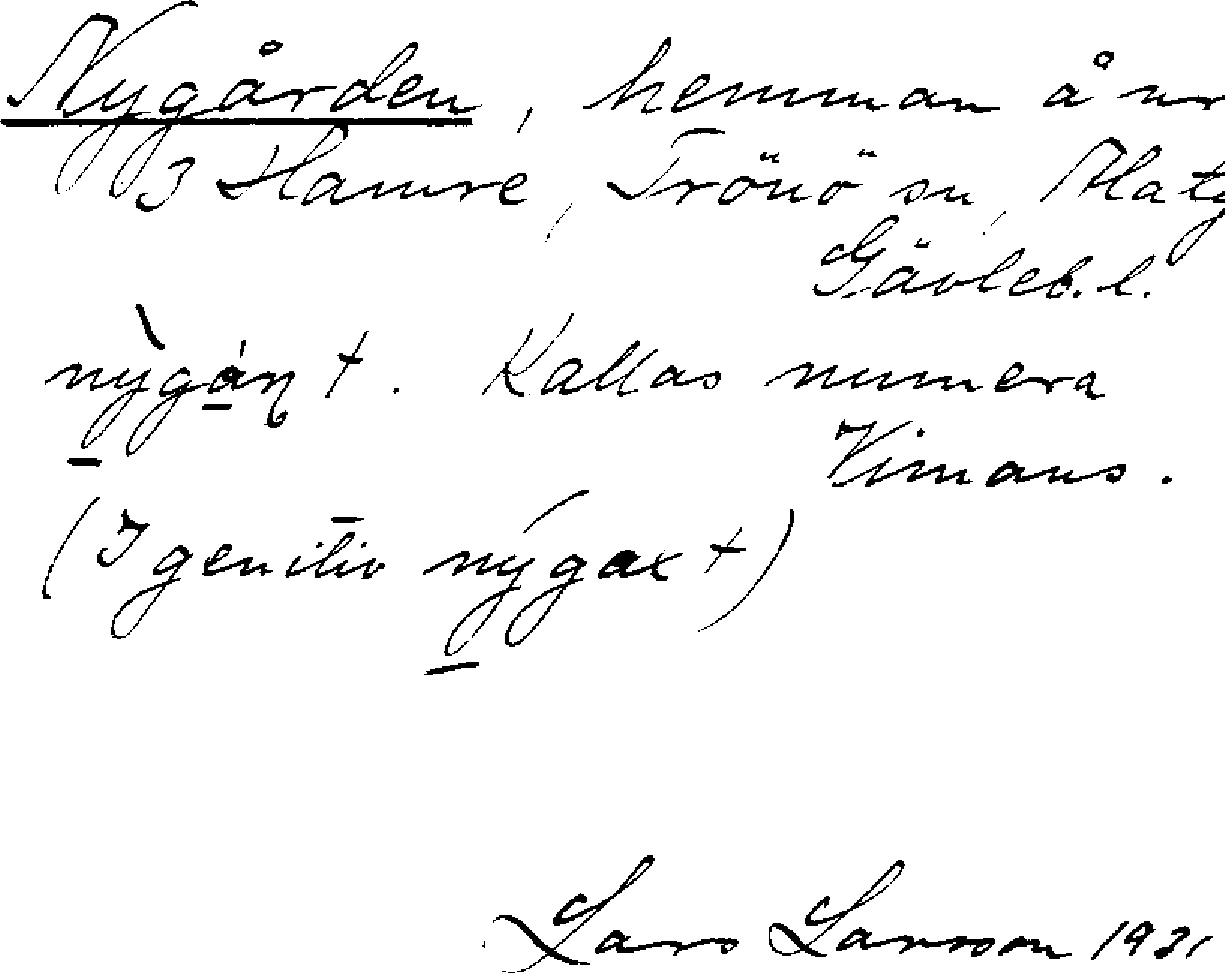 Nygården, hemman å nr
3 Hamre, Trönö sn, Alatg
Gävleb. l.
nỳgá̠ṇ †. Kallas numera
Vimans.
(I genitiv nýgax †)
Lars Larsson 1931